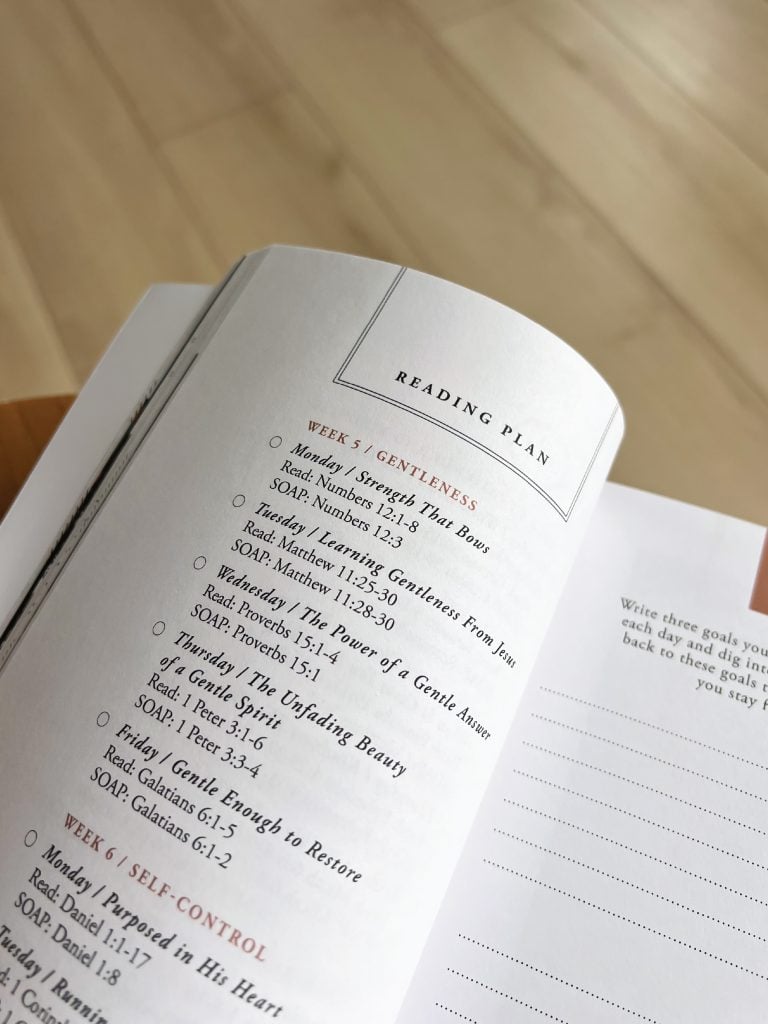 READING PLAN
WEEK 5 / GENTLENESS
Monday / Strength That Bows
Read: Numbers 12:1-8
SOAP: Numbers 12:3
Tuesday / Learning Gentleness From Jesus
Read: Matthew 11:25-30
SOAP: Matthew 11:28-30
Wednesday / The Power of a Gentle Answer
Read: Proverbs 15:1-4
SOAP: Proverbs 15:1
Thursday / The Unfading Beauty
of a Gentle Spirit
Read: 1 Peter 3:1-6
SOAP: 1 Peter 3:3-4
Friday / Gentle Enough to Restore
Read: Galatians 6:1-5
SOAP: Galatians 6:1-2
WEEK 6 / SELF-CONTROL
Monday / Purposed in His Heart
Read: Daniel 1:1-17
SOAP: Daniel 1:8
Tuesday /
Write three goals you
each day and dig
back to these goals
you stay